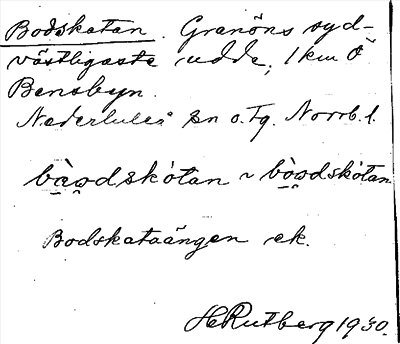 Bodskatan. Granöns syd-
västligaste udde, 1 km Ö
Bensbyn.
Nederluleå sn o. Tg. Norrb. l.
ba̱o̱dskòtan ~ bò̱o̱dskòtan
Bodskataängen ek.
H Rutberg 1930.